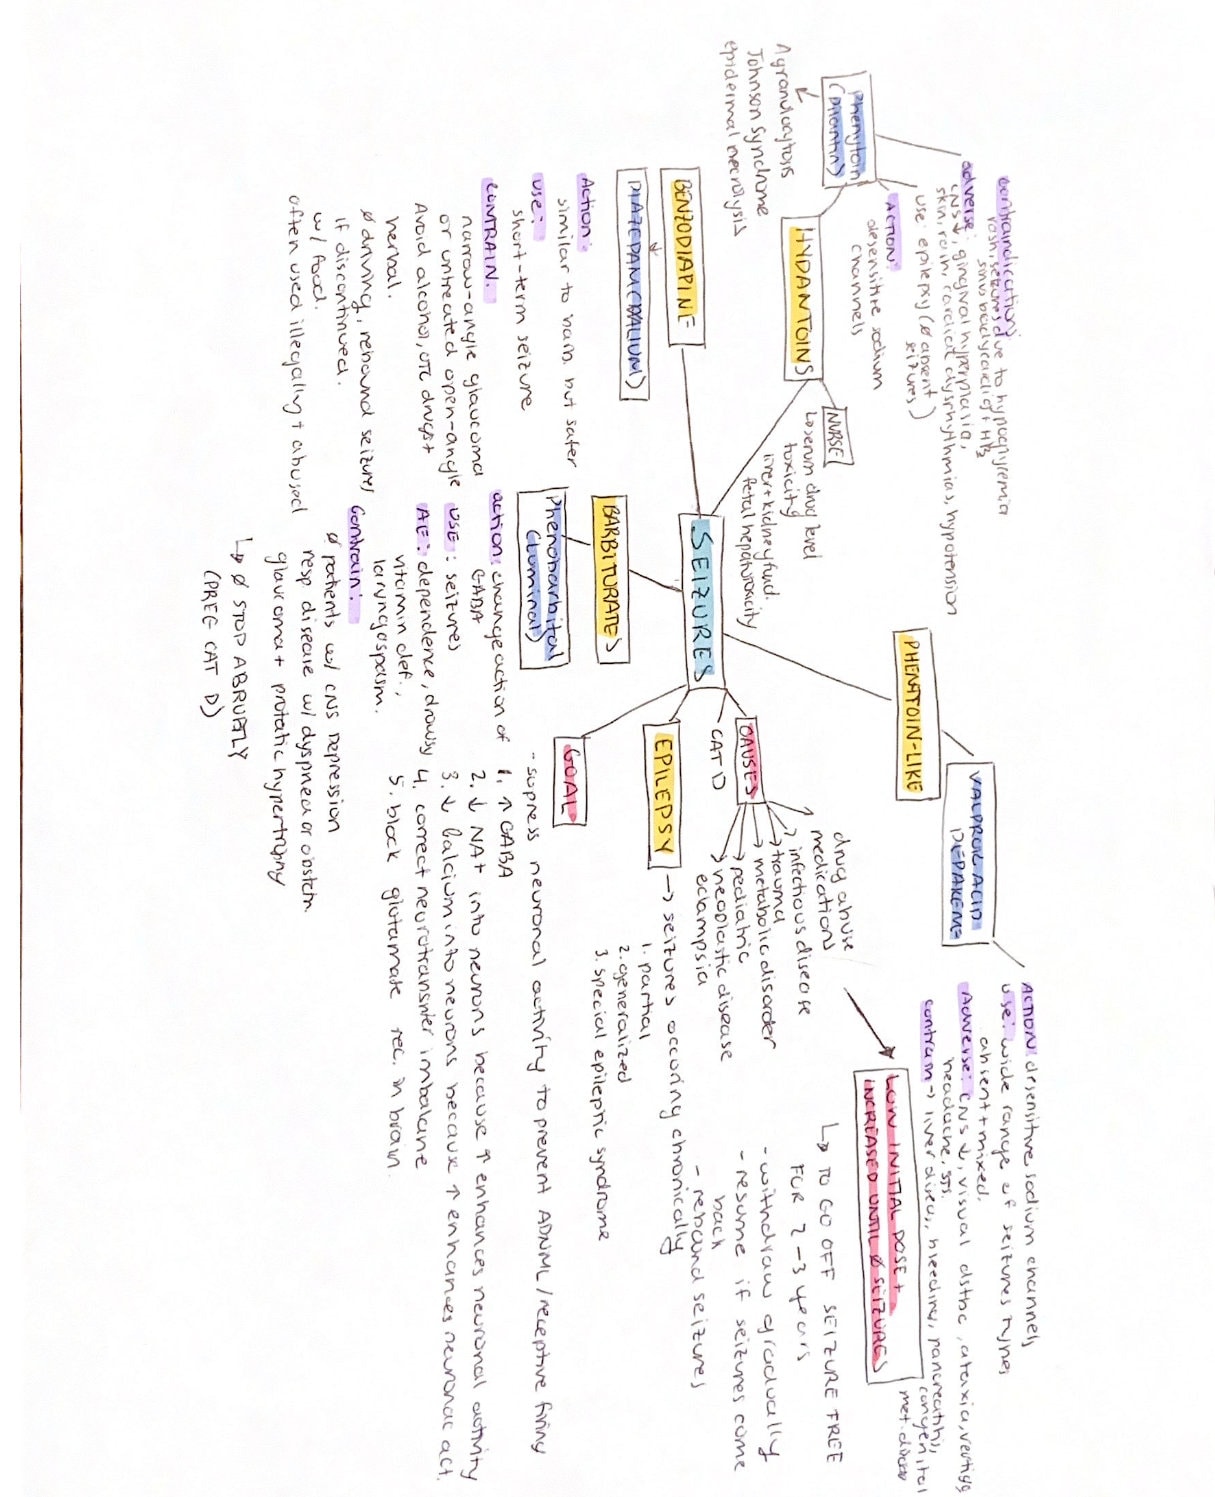 contraindication:
rash, seizures due to hypoglycemia
sinus bradycardia, + HB
adverse:
CNS↓, gingival hyperplasia,
skin rash, cardiac dysrhythmias, hypotension
Phenytoin
(Dilantin)
Agranulocytosis
Johnson Syndrome
epidermal necrolysis
use: epilepsy (Ø absent
seizures)
ACTION:
desensitive sodium
channels
HYDANTOINS
NURSE
serum drug level
toxicity
liver + kidney fund.
fetal hepatotoxicity
BENZODIAPINE
DIAZEPAM (VALIUM)
Action:
similar to barb. but safer
use:
short-term seizure
CONTRAIN.
narrow-angle glaucoma
or untreated open-angle
Avoid alcohol, OTC drugs +
herbal.
Ø driving, rebound seizures
if discontinued.
w/ food.
often used illegally + abused
SEIZURES
BARBITURATES
Phenobarbital
(Luminal)
action: change action of
GABA
USE: seizures
AE: dependence, drowsy
vitamin def.,
laryngospasm.
Contrain:
Ø patients w/ CNS depression
resp disease w/ dyspnea or obstcn.
glaucoma + protatic hypertrophy
↳ Ø STOP ABRUPTLY
(PREG CAT D)
PHENYTOIN-LIKE
VALPROIC ACID
DEPAKENE
ACTION: desensitive sodium channels
use: wide range of seizures types
absent + mixed.
Adverse: CNS ↓, visual dstbc, ataxia, vertigo
headache, sts.
contrain → liver disease, bleeding, pancreatitis,
congenital
met. disease
CAUSES
CAT D
drug abuse
medications
infectious disease
trauma
metabolic disorder
pediatric
neoplastic disease
eclampsia
LOW INITIAL DOSE +
INCREASED UNTIL Ø SEIZURES
↳ TO GO OFF SEIZURE FREE
FOR 2-3 years
- withdraw gradually
- resume if seizures come
back
- rebound seizures
EPILEPSY → seizures occuring chronically
1. partial
2. generalized
3. special epileptic syndrome
GOAL
- supress neuronal activity to prevent ADNML / receptive firing
1. ↑ GABA
2. ↓ NA+ into neurons because ↑ enhances neuronal activity
3. ↓ calcium into neurons because ↑ enhances neuronal act.
4. correct neurotransmiter imbalane
5. block glutamate rec. in brain.